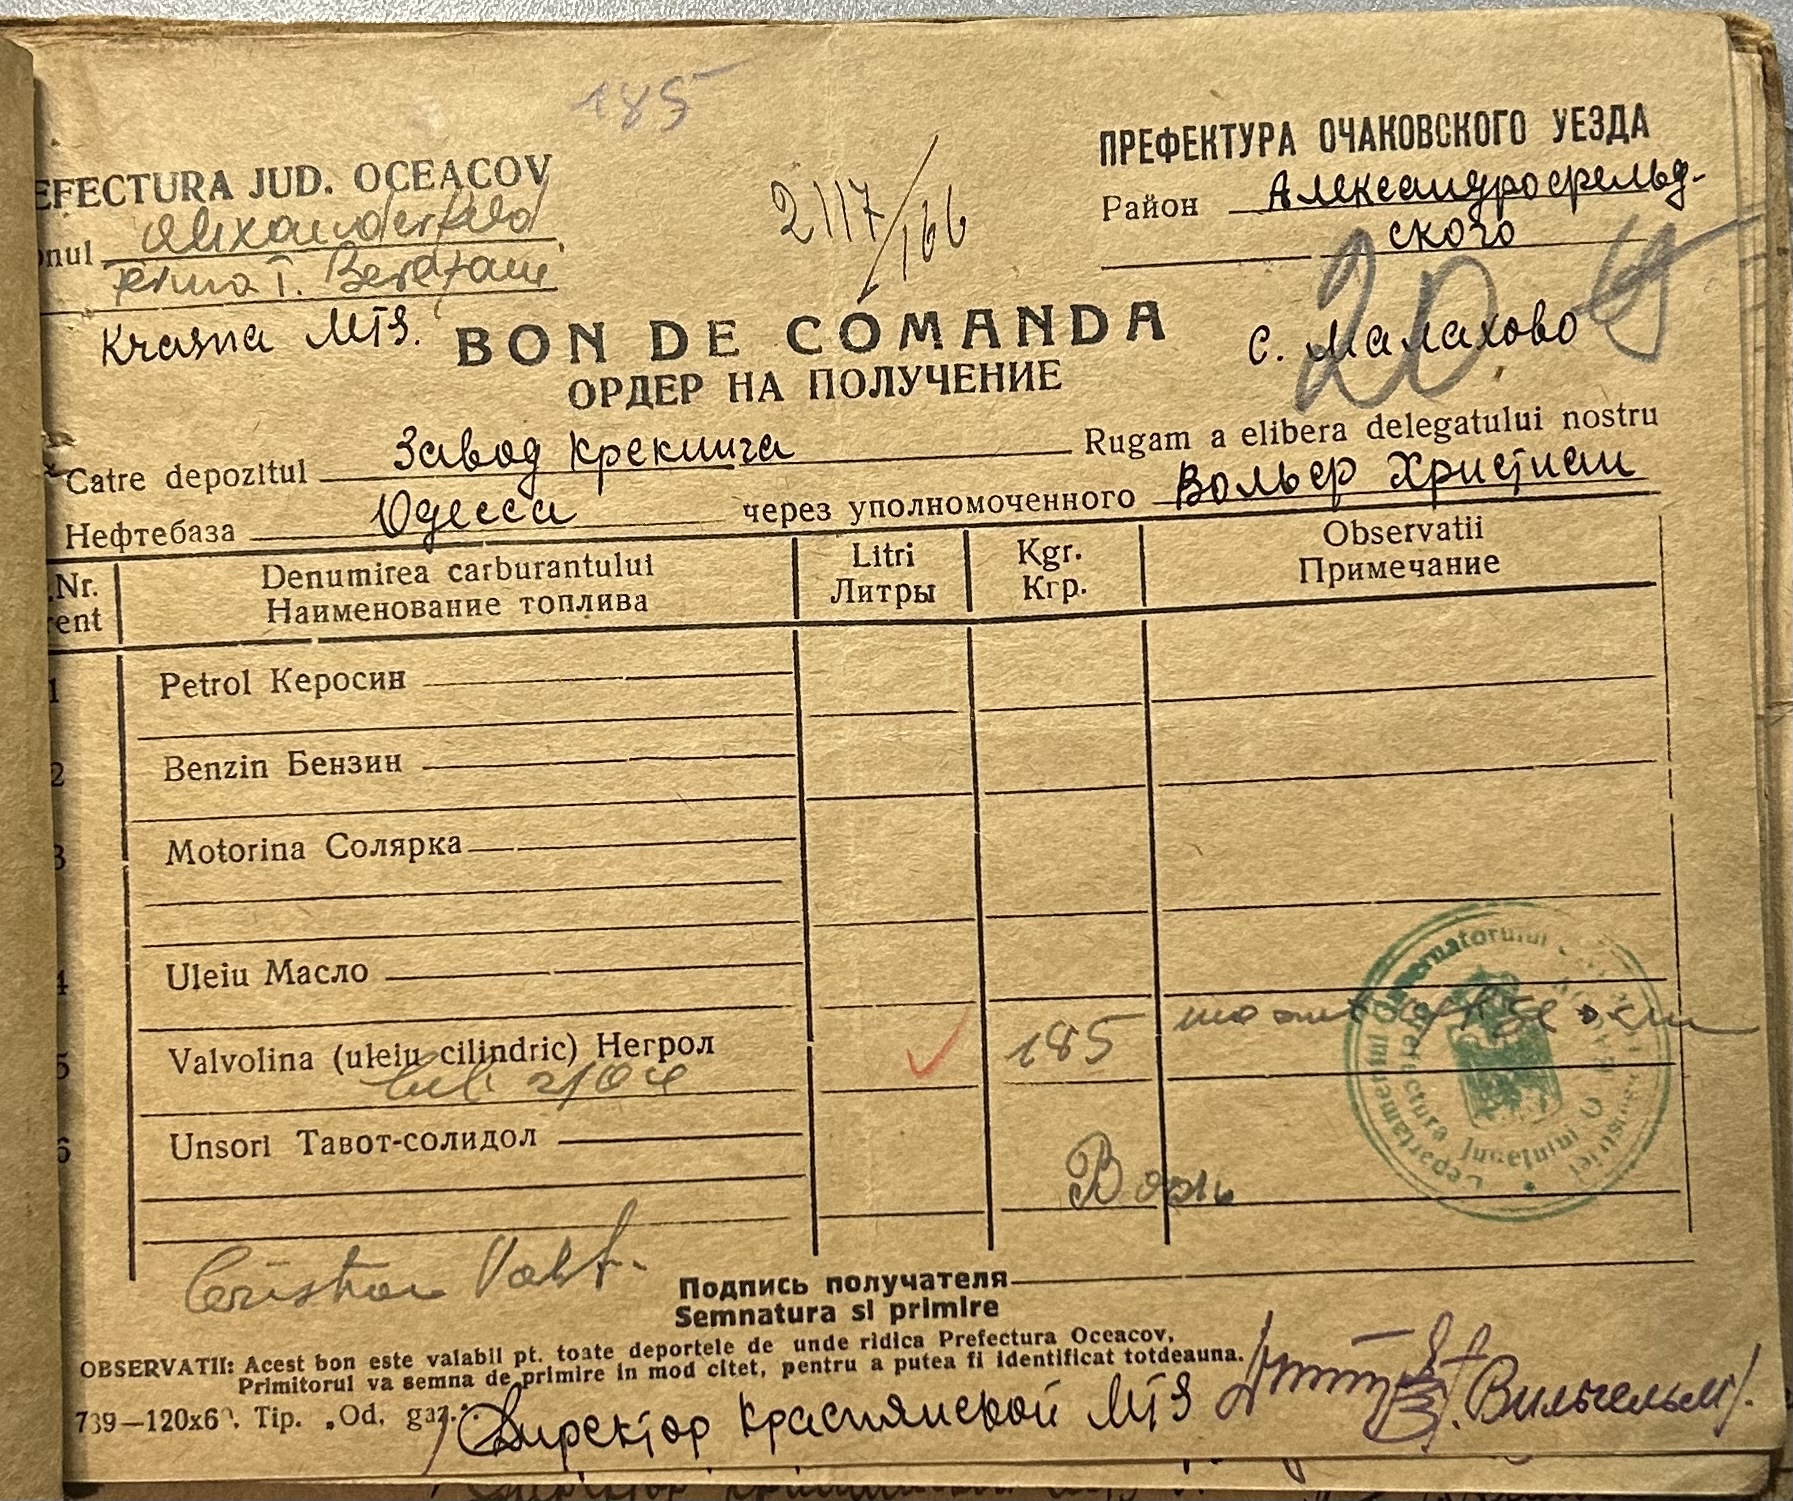 185
EFECTURA JUD. OCEACOV
onul Alixanderfeld
T. Berezani
Krasna MTS.
2117/166
ПРЕФЕКТУРА ОЧАКОВСКОГО УЕЗДА
Район Александрофельд-
ского
20
с. Малахово
BON DE COMANDA
ОРДЕР НА ПОЛУЧЕНИЕ
Catre depozitul Завод крекинга Rugam a elibera delegatului nostru
Нефтебаза Одесса через уполномоченного Вольф Христиан
.Nr. Denumirea carburantului Litri Kgr. Observatii
rent Наименование топлива Литры Кгр. Примечание
1 Petrol Керосин
2 Benzin Бензин
3 Motorina Солярка
4 Uleiu Масло
5 Valvolina (uleiu cilindric) Негрол 185
6 Unsori Тавот-солидол
Departamentul Guvernatorului
Prefectura Judetului Oceacov
Cristian Volf.
Подпись получателя
Semnatura si primire
OBSERVATII: Acest bon este valabil pt. toate deportele de unde ridica Prefectura Oceacov.
Primitorul va semna de primire in mod citet, pentru a putea fi identificat totdeauna.
739—120x6 . Tip. „Od. gaz."
Директор Краснянской MTS Вильгельм).